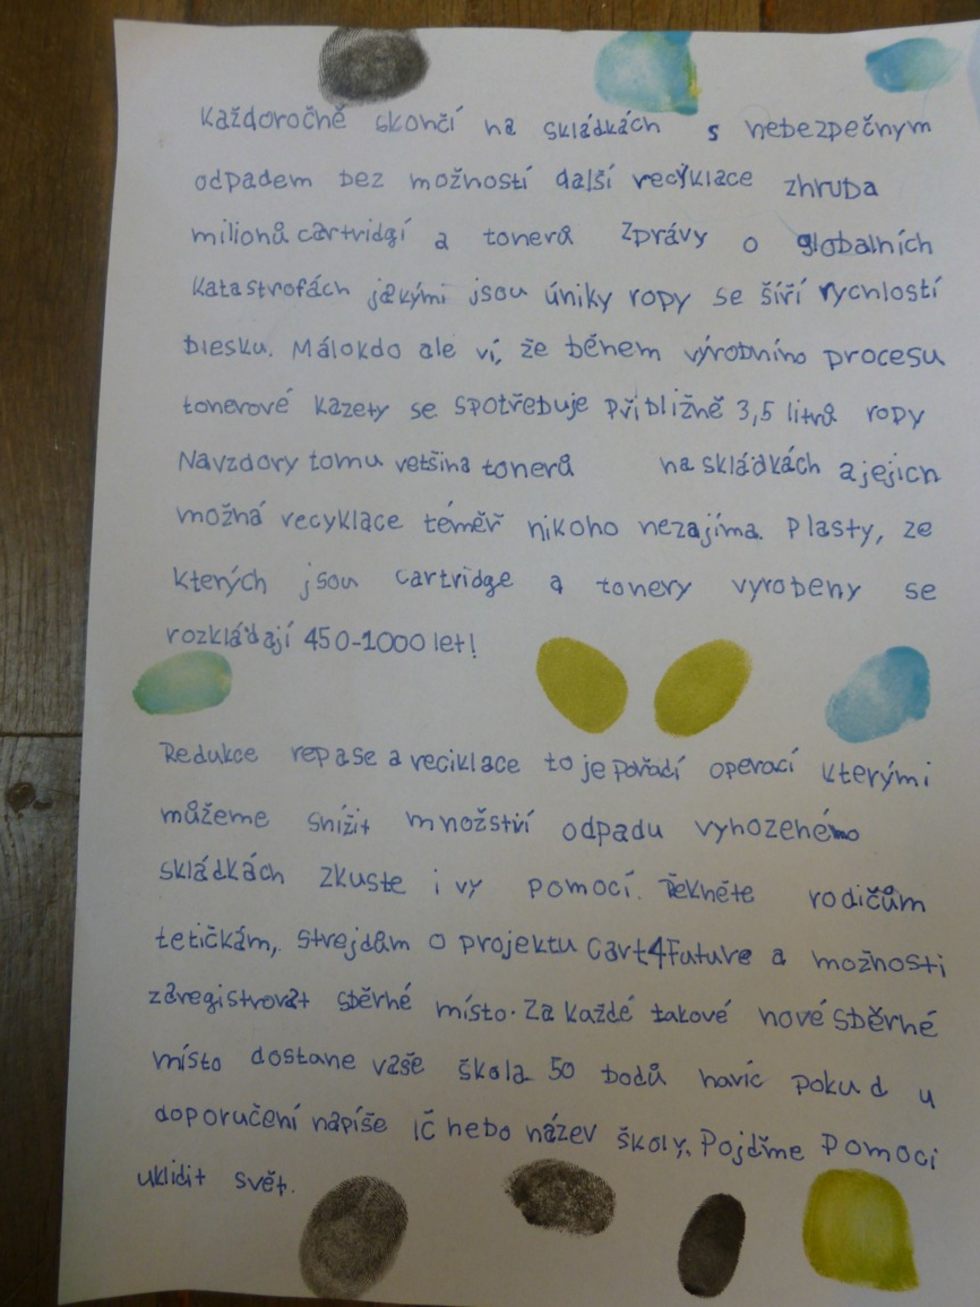 Každoročně skončí na skládkách s nebezpečným
odpadem bez možností další recyklace zhruba
milionů cartridgí a tonerů Zprávy o globalních
katastrofách jakými jsou úniky ropy se šíří rychlostí
blesku. Málokdo ale ví, že během výrobního procesu
tonerové kazety se spotřebuje přibližně 3,5 litrů ropy
Navzdory tomu vetšina tonerů na skládkách a jejich
možná recyklace téměř nikoho nezajíma. Plasty, ze
kterých jsou cartridge a tonery vyrobeny se
rozkládají 450-1000 let!
Redukce repase a reciklace to je pořadí operací kterými
můžeme snížit množství odpadu vyhozeného
skládkách zkuste i vy pomocí. Řekněte rodičům
tetičkám, strejdům o projektu Cart4Future a možnosti
zaregistrovat sběrné místo. Za každé takové nové sběrné
místo dostane vaše škola 50 bodů navíc pokud u
doporučení napíše IČ nebo název školy. Pojdďme pomoci
uklidit svět.